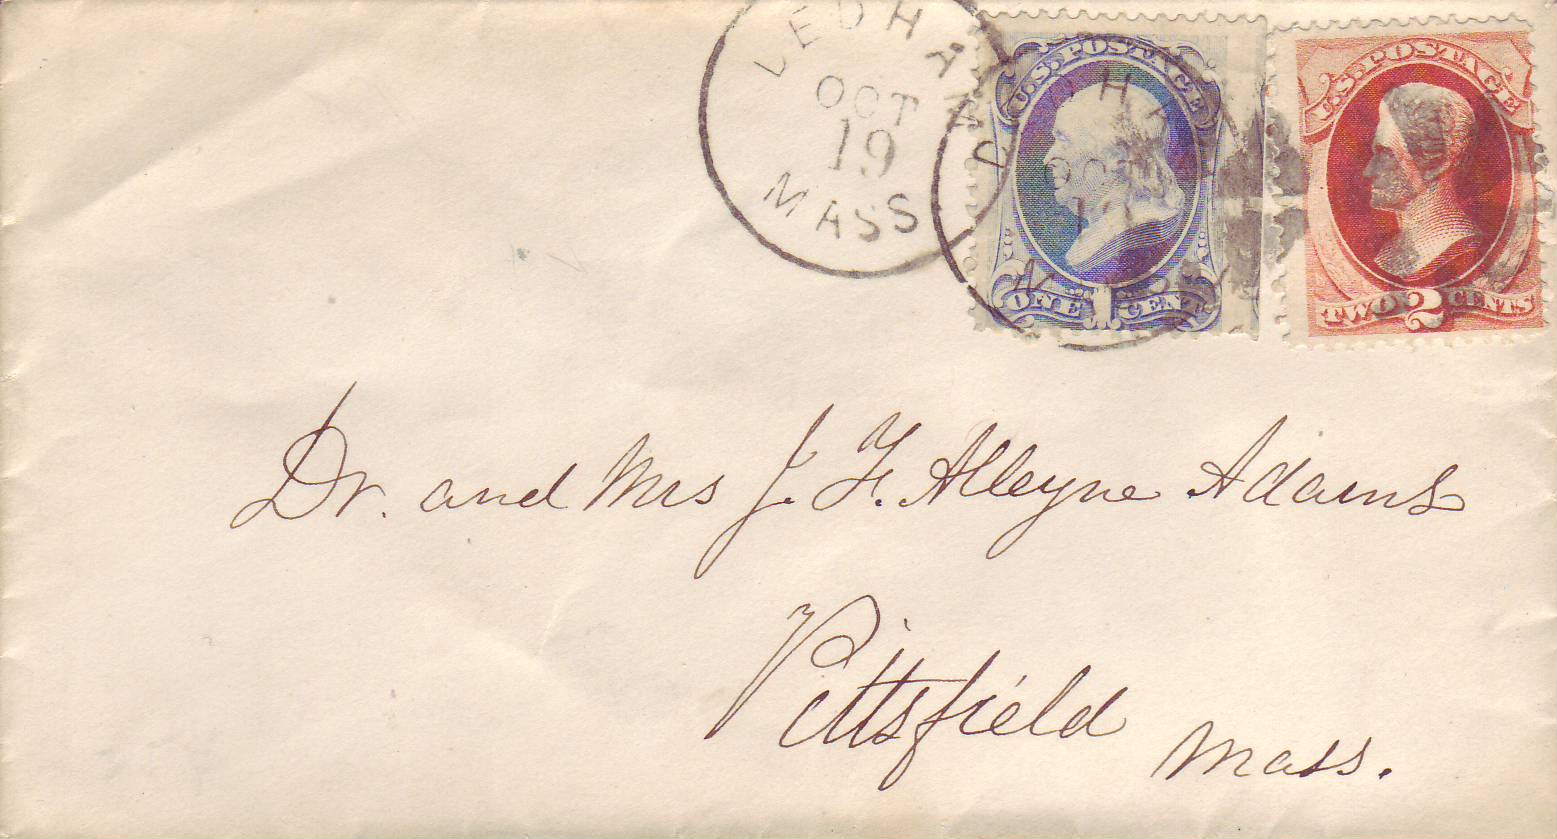 DEDHAM
OCT
19
MASS
U.S. POSTAGE
ONE 1 CENT
U.S. POSTAGE
TWO 2 CENTS
Dr. and Mrs J. F. Alleyne Adams
Pittsfield
Mass.